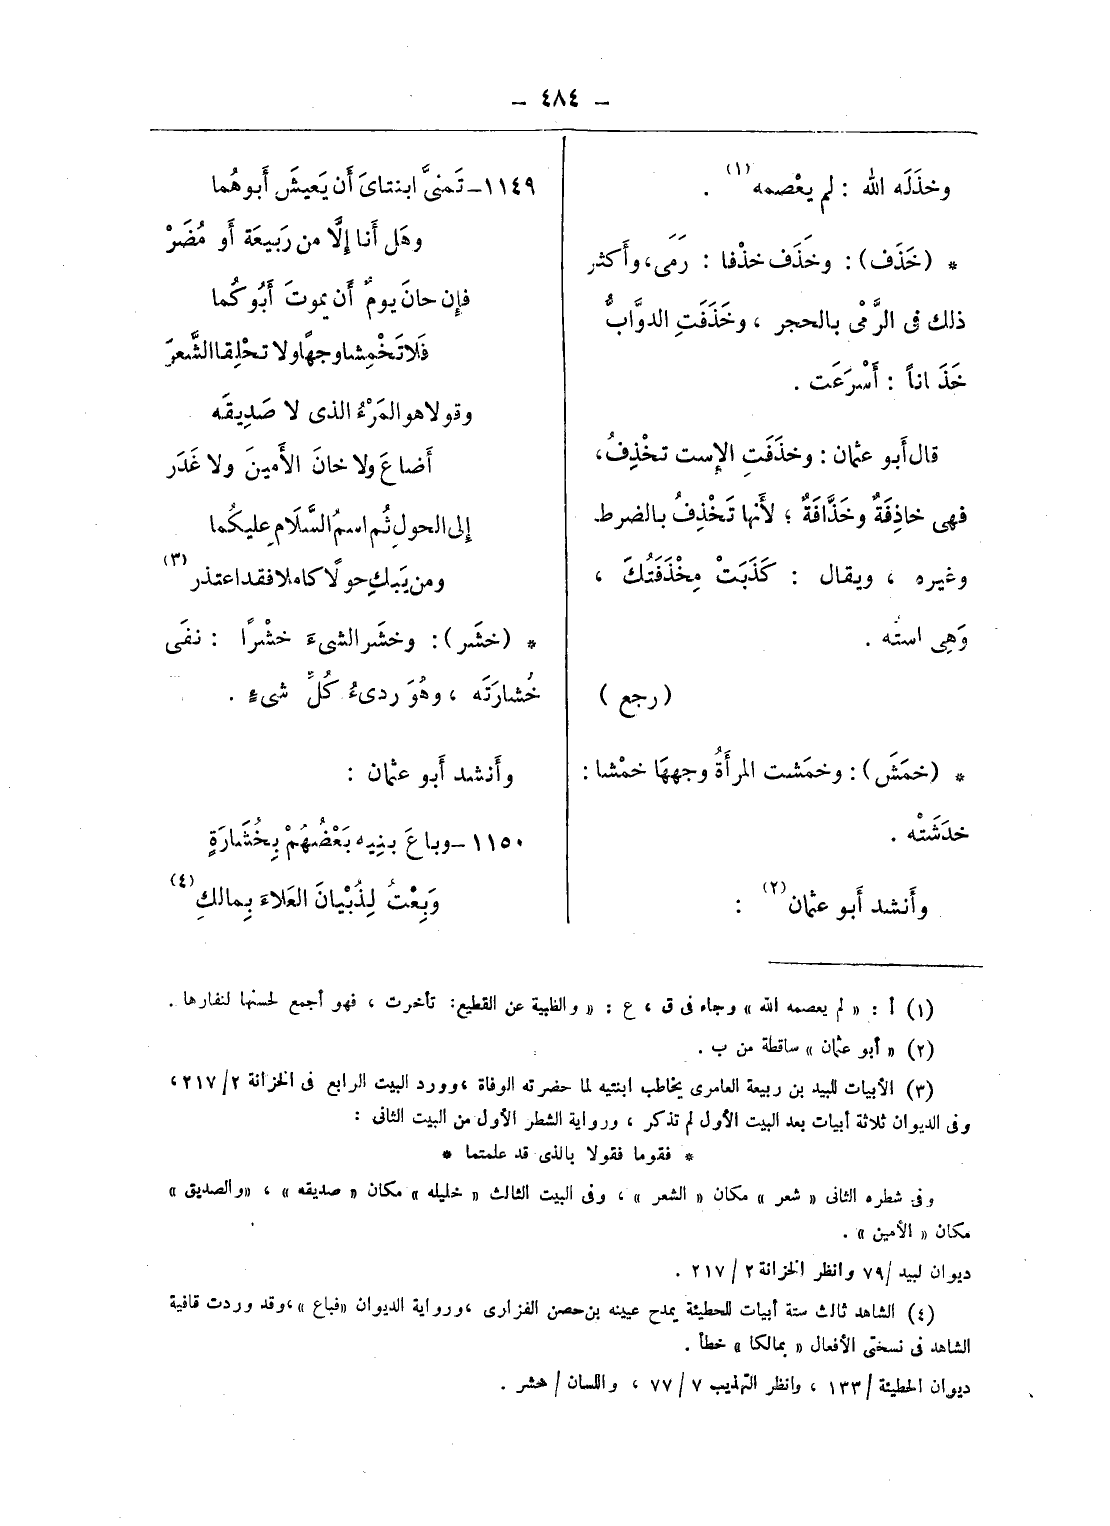 – ٤٨٤ –
وخذَلَه الله : لم يعْصمه (١) .
* (خَذَف) : وخَذَف خذْفا : رَمَى، وأَكثر
ذلك فى الرَّمْى بالحجر ، وخَذَفَتِ الدوَّابُّ
خَذَ اناً : أَسْرَعَت .
قال أَبو عثمان : وخذَفَتِ الإست تخْذِفُ،
فهى خاذِفَةٌ وخَذَّافَةٌ ؛ لأَنها تَخْذِفُ بالضرط
وغيره ، ويقال : كَذَبَتْ مِخْذَفَتُكَ ،
وَهِى استُه .
( رجع )
* (خمَشَ) : وخمَشت المرأَةُ وجههَا خمْشا :
خدَشَتْه .
وأَنشد أَبو عثمان (٢) :
١١٤٩ – تَمنىَّ ابنتاىَ أَن يَعيشَ أَبوهُما
وهَل أَنا إِلَّا من رَبيعَة أَو مُضَرْ
فإِن حانَ يومٌ أَن يموتَ أَبُوكُما
فَلا تَخْمِشا وجهًا ولا تحْلِقا الشَّعرَ
وقولا هو المَرْءُ الذى لا صَدِيقَه
أَضاعَ ولا خانَ الأَمينَ ولا غَدَر
إِلى الحولِ ثُم اسمُ السَّلَامِ عليكُما
ومن يَبكِ حولًا كاملا فقد اعتذر (٣)
* (خشَر) : وخشَر الشىءَ خشْرًا : نفَى
خُشارَتَه ، وهُوَ ردىءُ كُلِّ شىءٍ .
وأَنشد أَبو عثمان :
١١٥٠ – وباعَ بنِيه بَعْضُهُمْ بِخُشَارَةٍ
وَبِعْتُ لِذُبْيانَ العَلاءَ بِمالكِ (٤)
(١) أ : « لم يعصمه الله » وجاء فى ق ، ع : « والظبية عن القطيع : تأخرت ، فهو أجمع لحسنها لنفارها .
(٢) « أبو عثمان » ساقطة من ب .
(٣) الأبيات للبيد بن ربيعة العامرى يخاطب ابنتيه لما حضرته الوفاة ، وورد البيت الرابع فى الخزانة ٢/ ٢١٧ ،
وفى الديوان ثلاثة أبيات بعد البيت الأول لم تذكر ، ورواية الشطر الأول من البيت الثانى :
* فقوما فقولا بالذى قد علمتما *
وفى شطره الثانى « شعر » مكان « الشعر » ، وفى البيت الثالث « خليله » مكان « صديقه » ، «والصديق »
مكان « الأمين » .
ديوان لبيد /٧٩ وانظر الخزانة ٢ / ٢١٧ .
(٤) الشاهد ثالث ستة أبيات للحطيئة يمدح عيينه بن حصن الفزارى ، ورواية الديوان «فباع» ، وقد وردت قافية
الشاهد فى نسختى الأفعال « بمالكا » خطأ .
ديوان الحطيئة / ١٣٣ ، وانظر التهذيب ٧ / ٧٧ ، واللسان / خشر .